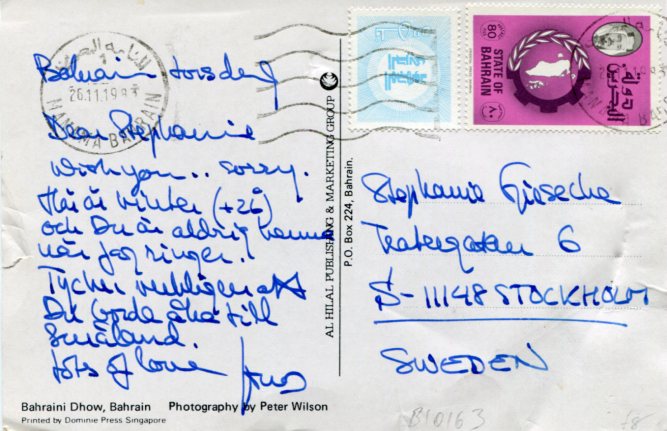 Bahrain torsdag
Dear Stephanie
Wish you.. sorry.
Här är vinter (+26)
och Du är aldrig hemma
när jag ringer..
Tycker verkligen att
Du borde åka till
Småland.
Lots of love
Bahraini Dhow, Bahrain Photography by Peter Wilson
Printed by Dominie Press Singapore
AL HILAL PUBLISHING & MARKETING GROUP
P.O. Box 224, Bahrain.
26.11.19
MANAMA BAHRAIN
80
STATE OF
BAHRAIN
دولة
البحرين
٨٠
Stephanie
6
S-11148 STOCKHOLM
SWEDEN
B10163